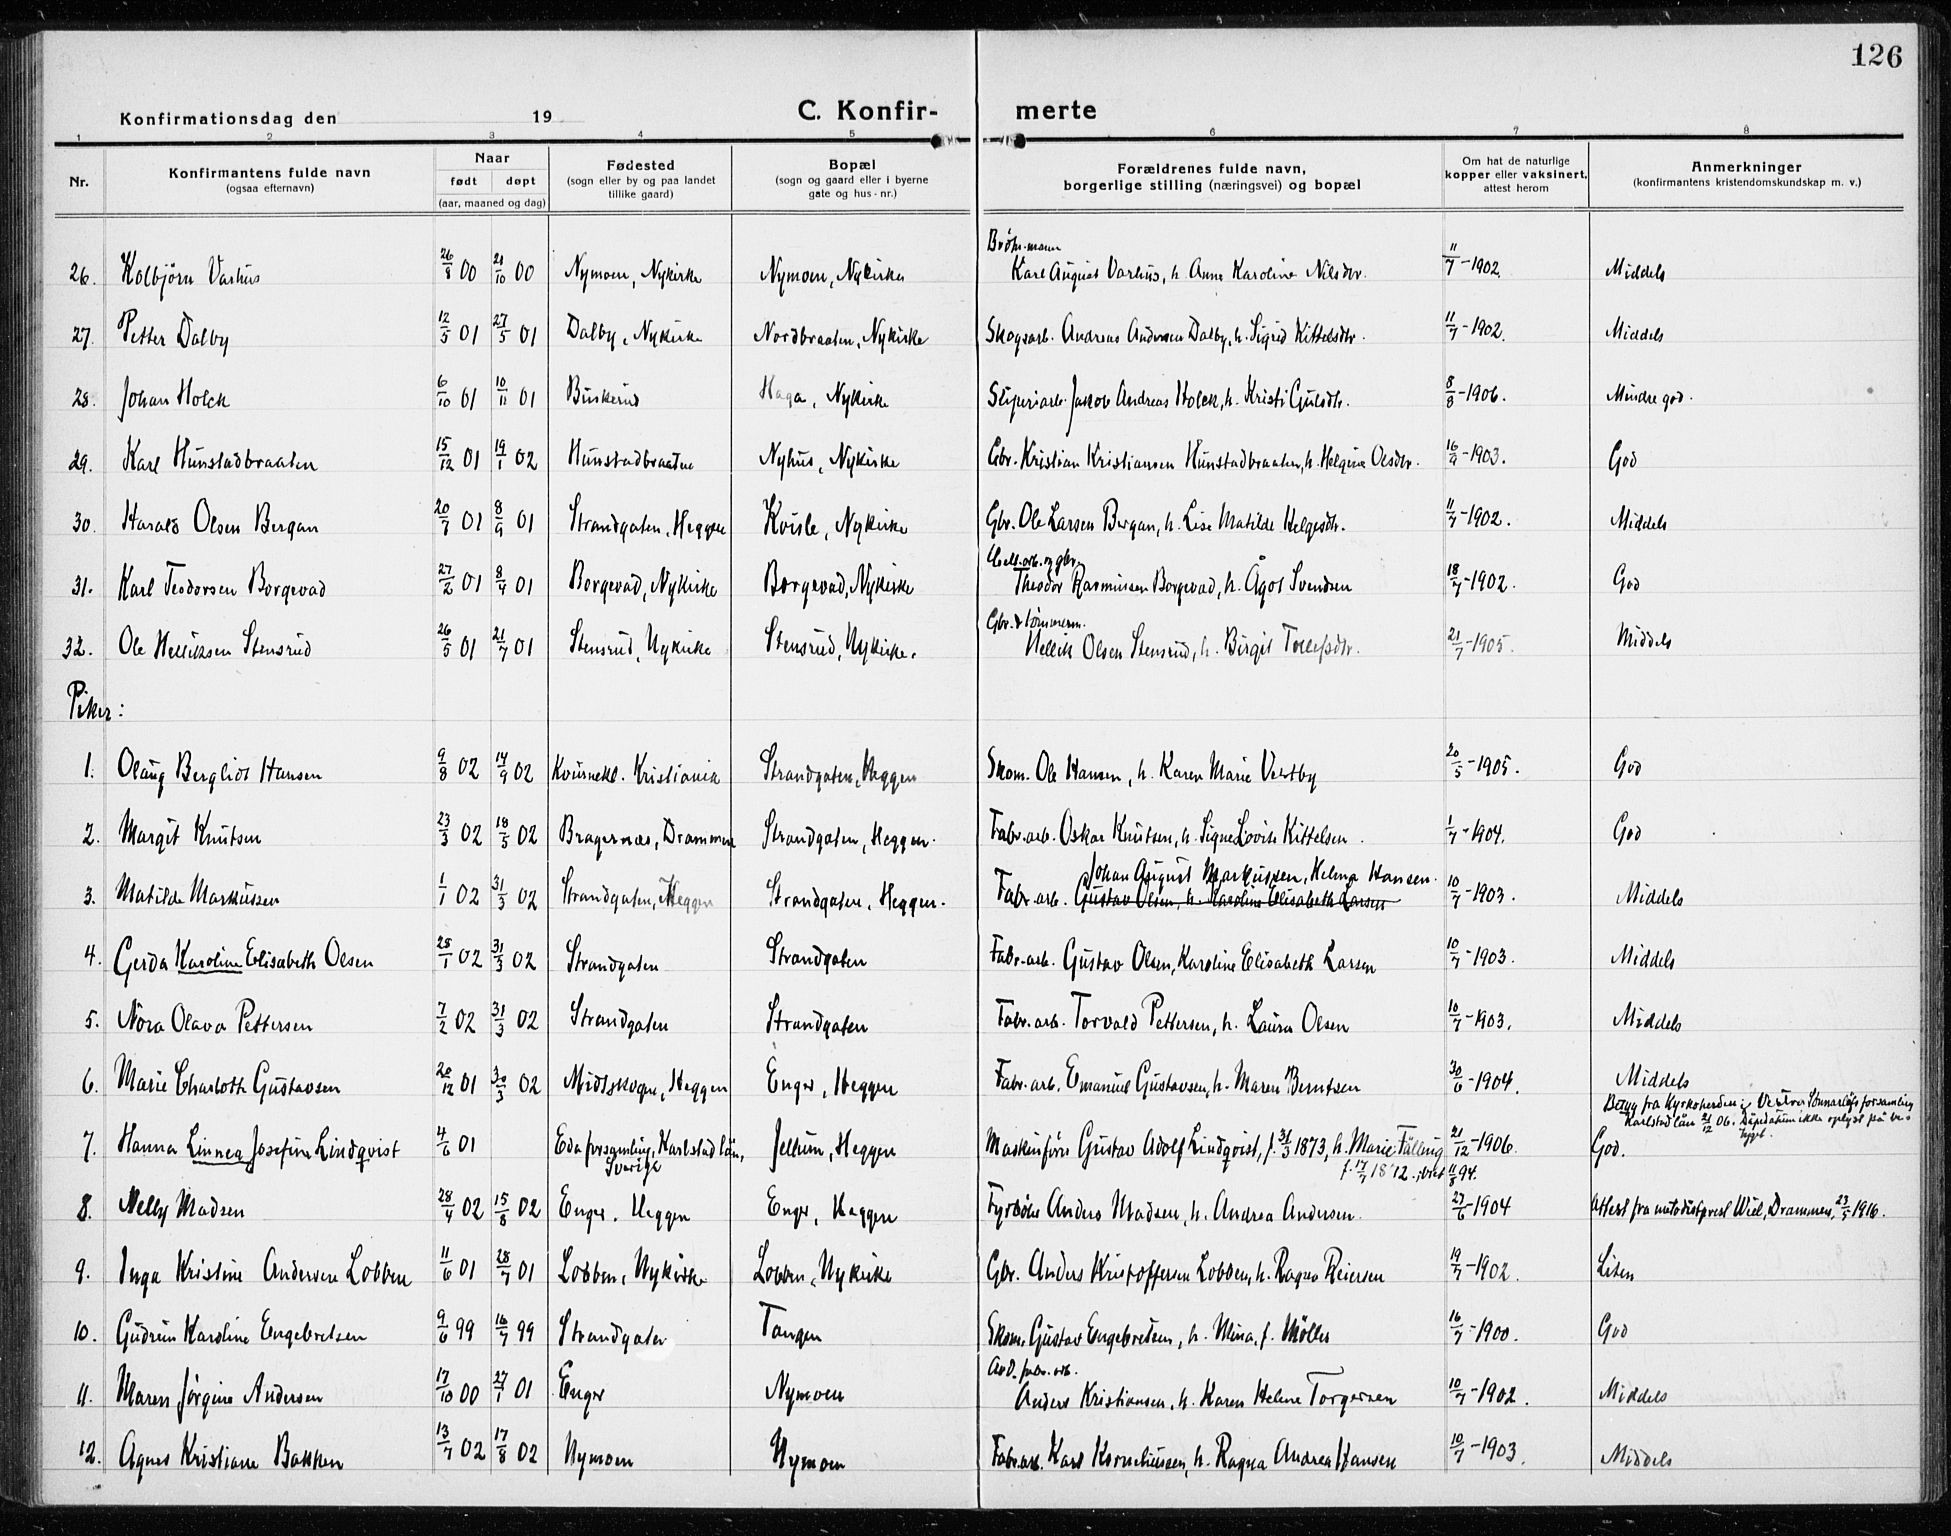 126
Konfirmationsdag den 19
C. Konfir- merte
1 2 3 4 5 6 7 8
Nr. Konfirmantens fulde navn (ogsaa efternavn) Naar født døpt (aar, maaned og dag) Fødested (sogn eller by og paa landet tillike gaard) Bopæl (sogn og gaard eller i byerne gate og hus-nr.) Forældrenes fulde navn, borgerlige stilling (næringsvei) og bopæl Om hat de naturlige kopper eller vaksinert, attest herom Anmerkninger (konfirmantens kristendomskundskap m. v.)
26. Kolbjörn Varhus 26/8 00 21/10 00 Nymoen, Nykirke Nymoen, Nykirke Karl August Varhus, h. Anne Karoline Nilsdtr. 11/7-1902. Middels
27. Petter Dalby 12/5 01 27/5 01 Dalby, Nykirke Nordbraaten, Nykirke Skogsarb. Andreas Andersen Dalby, h. Sigrid Kittelsdtr. 11/7-1902. Middels
28. Johan Holck 6/10 01 10/11 01 Buskerud Haga, Nykirke Sliperiarb. Jakob Andreas Holck, h. Kristi Gulsdtr. 8/8-1906. Mindre god.
29. Karl Hunstadbraaten 15/12 01 19/1 02 Hunstadbraaten Nyhus, Nykirke Gbr. Kristian Kristiansen Hunstadbraaten, h. Helgine Olsdtr. 16/9-1903. God
30. Harald Olsen Bergan 20/7 01 8/9 01 Strandgaten, Heggen Kvisle, Nykirke Gbr. Ole Larsen Bergan, h. Lise Matilde Helgesdtr. 11/7-1902. Middels
31. Karl Teodorsen Borgevad 27/2 01 8/4 01 Borgevad, Nykirke Borgevad, Nykirke Cell.arb. og gbr. Theodor Rasmussen Borgevad, h. Ågot Svendsen 18/7-1902. God
32. Ole Helliksen Stensrud 26/5 01 21/7 01 Stensrud, Nykirke Stensrud, Nykirke. Gbr. & tømmerm. Hellik Olsen Stensrud, h. Birgit Tollefsdtr. 21/7-1905. Middels
Piker:
1. Olaug Bergliot Hansen 9/8 02 14/9 02 Kvinnekl. Kristiania Strandgaten, Heggen Skom. Ole Hansen, h. Karen Marie Vestby 20/5-1905. God
2. Margit Knutsen 23/3 02 18/5 02 Bragernæs, Drammen Strandgaten, Heggen. Fabr.arb. Oskar Knutsen, h. Signe Lovise Kittelsen. 1/7-1904. God
3. Matilde Markussen 1/1 02 31/3 02 Strandgaten, Heggen Strandgaten, Heggen. Fabr.arb. Johan August Markussen, Helma Hansen. Gustav Olsen, h. Karoline Elisabeth Larsen 10/7-1903. Middels
4. Gerda Karoline Elisabeth Olsen 28/1 02 31/3 02 Strandgaten Strandgaten Fabr.arb. Gustav Olsen, Karoline Elisabeth Larsen 10/7-1903. Middels
5. Nora Olava Pettersen 7/2 02 31/3 02 Strandgaten Strandgaten Fabr.arb. Torvald Pettersen, h. Laura Olsen 10/7-1903. Middels
6. Marie Charloth Gustavsen 20/12 01 30/3 02 Midtskogen, Heggen Enger, Heggen Fabr.arb. Emanuel Gustavsen, h. Maren Berntsen 30/6-1904. Middels
7. Hanna Linnea Josefina Lindqvist 4/6 01 Eda forsamling, Karlstad län, Sverige Jellum, Heggen Maskinförer Gustav Adolf Lindqvist, f. 31/3 1873, h. Marie Fälling f. 17/7 1872, viet 11/8 94. 21/12-1906. Betyg fra Kyrkoherden i Vestra forsamling Karlstad län 21/12 06. Dåpsdatum ikke oplyst på betyget. God.
8. Nelly Madsen 28/4 02 15/8 02 Enger, Heggen Enger, Heggen Fyrböter Anders Madsen, h. Andrea Andersen. 27/6-1904 Attest fra metodistprest Wiel, Drammen, 23/5 1916.
9. Inga Kristine Andersen Lobben 11/6 01 28/7 01 Lobben, Nykirke Lobben, Nykirke Gbr. Anders Kristoffersen Lobben, h. Ragna Reiersen 19/7-1902. Liten
10. Gudrun Karoline Engebretsen 9/6 99 16/7 99 Strandgaten Tangen Skom. Gustav Engebretsen, h. Mina, f. Møller 16/7-1900. God
11. Maren Jörgine Andersen 17/10 00 27/1 01 Enger Nymoen Avd. fabr. arb. Anders Kristiansen, h. Karen Helene Torgersen 10/7-1902. Middels
12. Agnes Kristiane Bakken 13/7 02 17/8 02 Nymoen Nymoen Fabr.arb. Karl Korneliussen, h. Ragna Andrea Hansen 10/7-1903. Middels